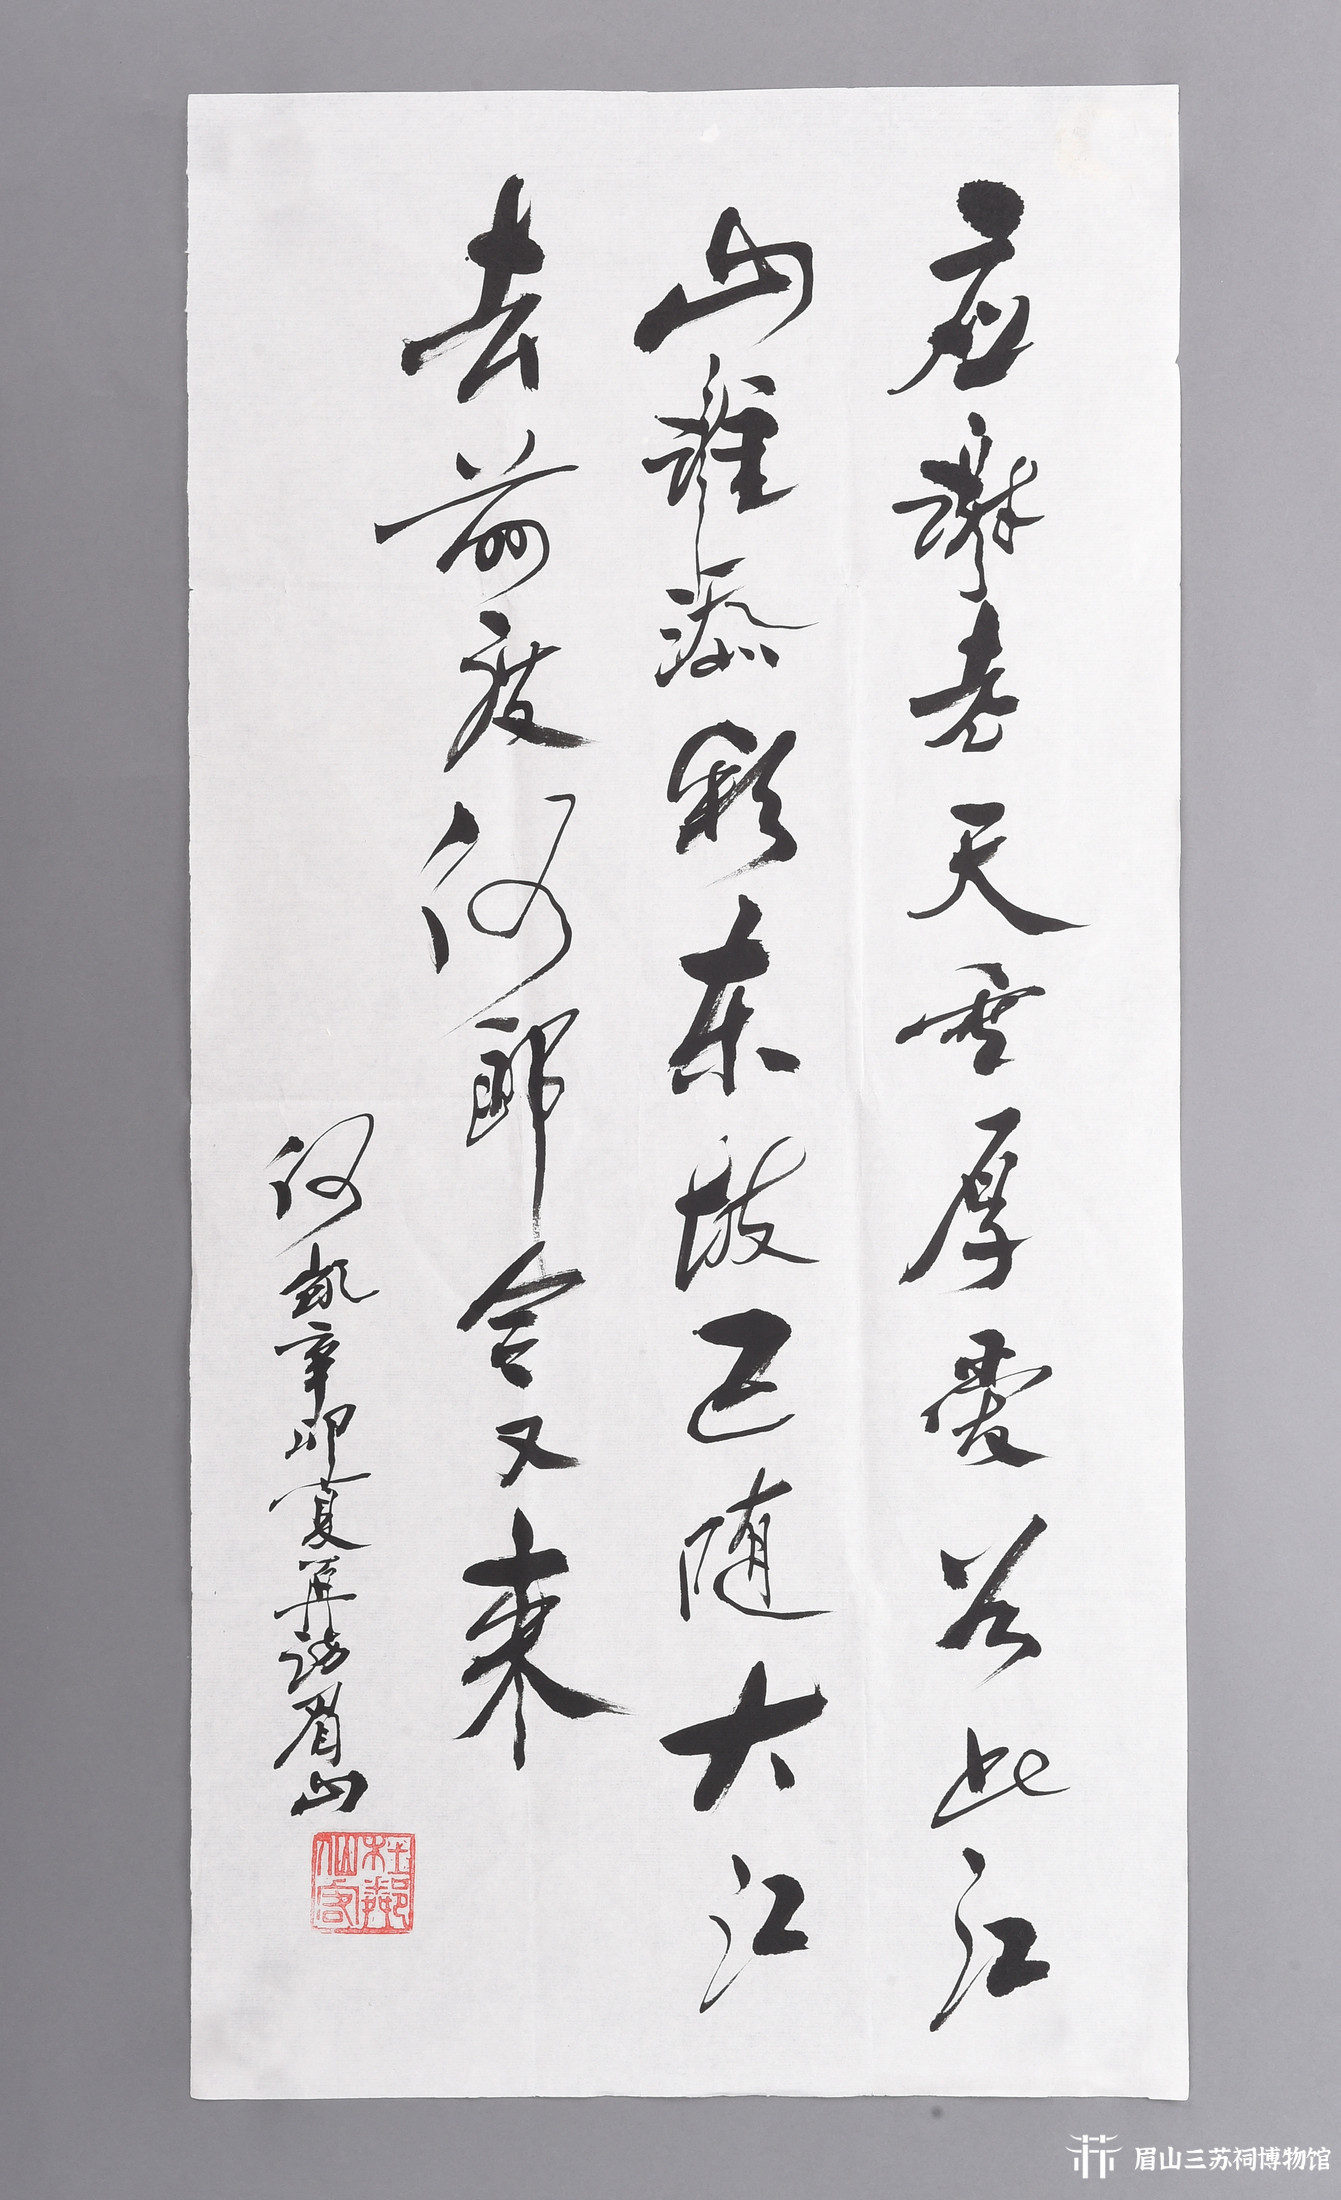 应谢老天垂厚爱若此江
山谁添彩东坡已随大江
去前度何郎今又来
何凯辛卯夏再访眉山
桂鄰
仙客
眉山三苏祠博物馆